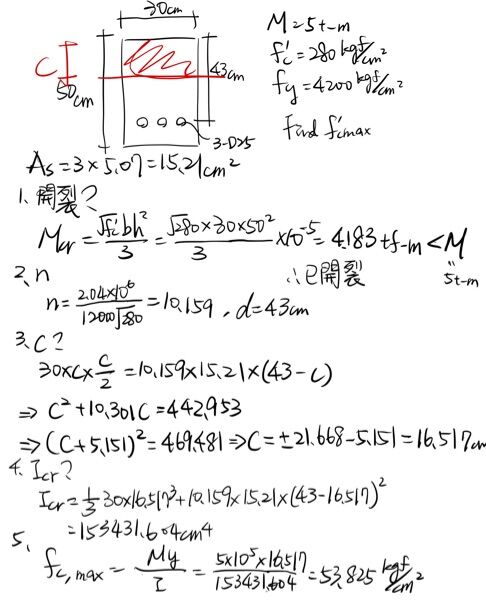 30cm
M=5t-m
C
50cm
43cm
f'c=280 kgf/cm²
fy=4200 kgf/cm²
3-D25
Find f'cmax
As=3×5.07=15.21cm²
1、開裂?
Mcr=√f'c bh²/3=√280×30×50²/3×10⁻⁵=4.183 tf-m<M
∴已開裂
"
5t-m
2、n
n=2.04×10⁶/12000√280=10.159，d=43cm
3、C?
30×C×C/2=10.159×15.21×(43-C)
⇒ C²+10.301C=442.953
⇒(C+5.151)²=469.481⇒C=±21.668-5.151=16.517cm
4、Icr?
Icr=1/3 30×16.517³+10.159×15.21×(43-16.517)²
=153431.604cm4
5、
fc,max=My/I=5×10⁵×16.517/153431.604=53.825 kgf/cm²